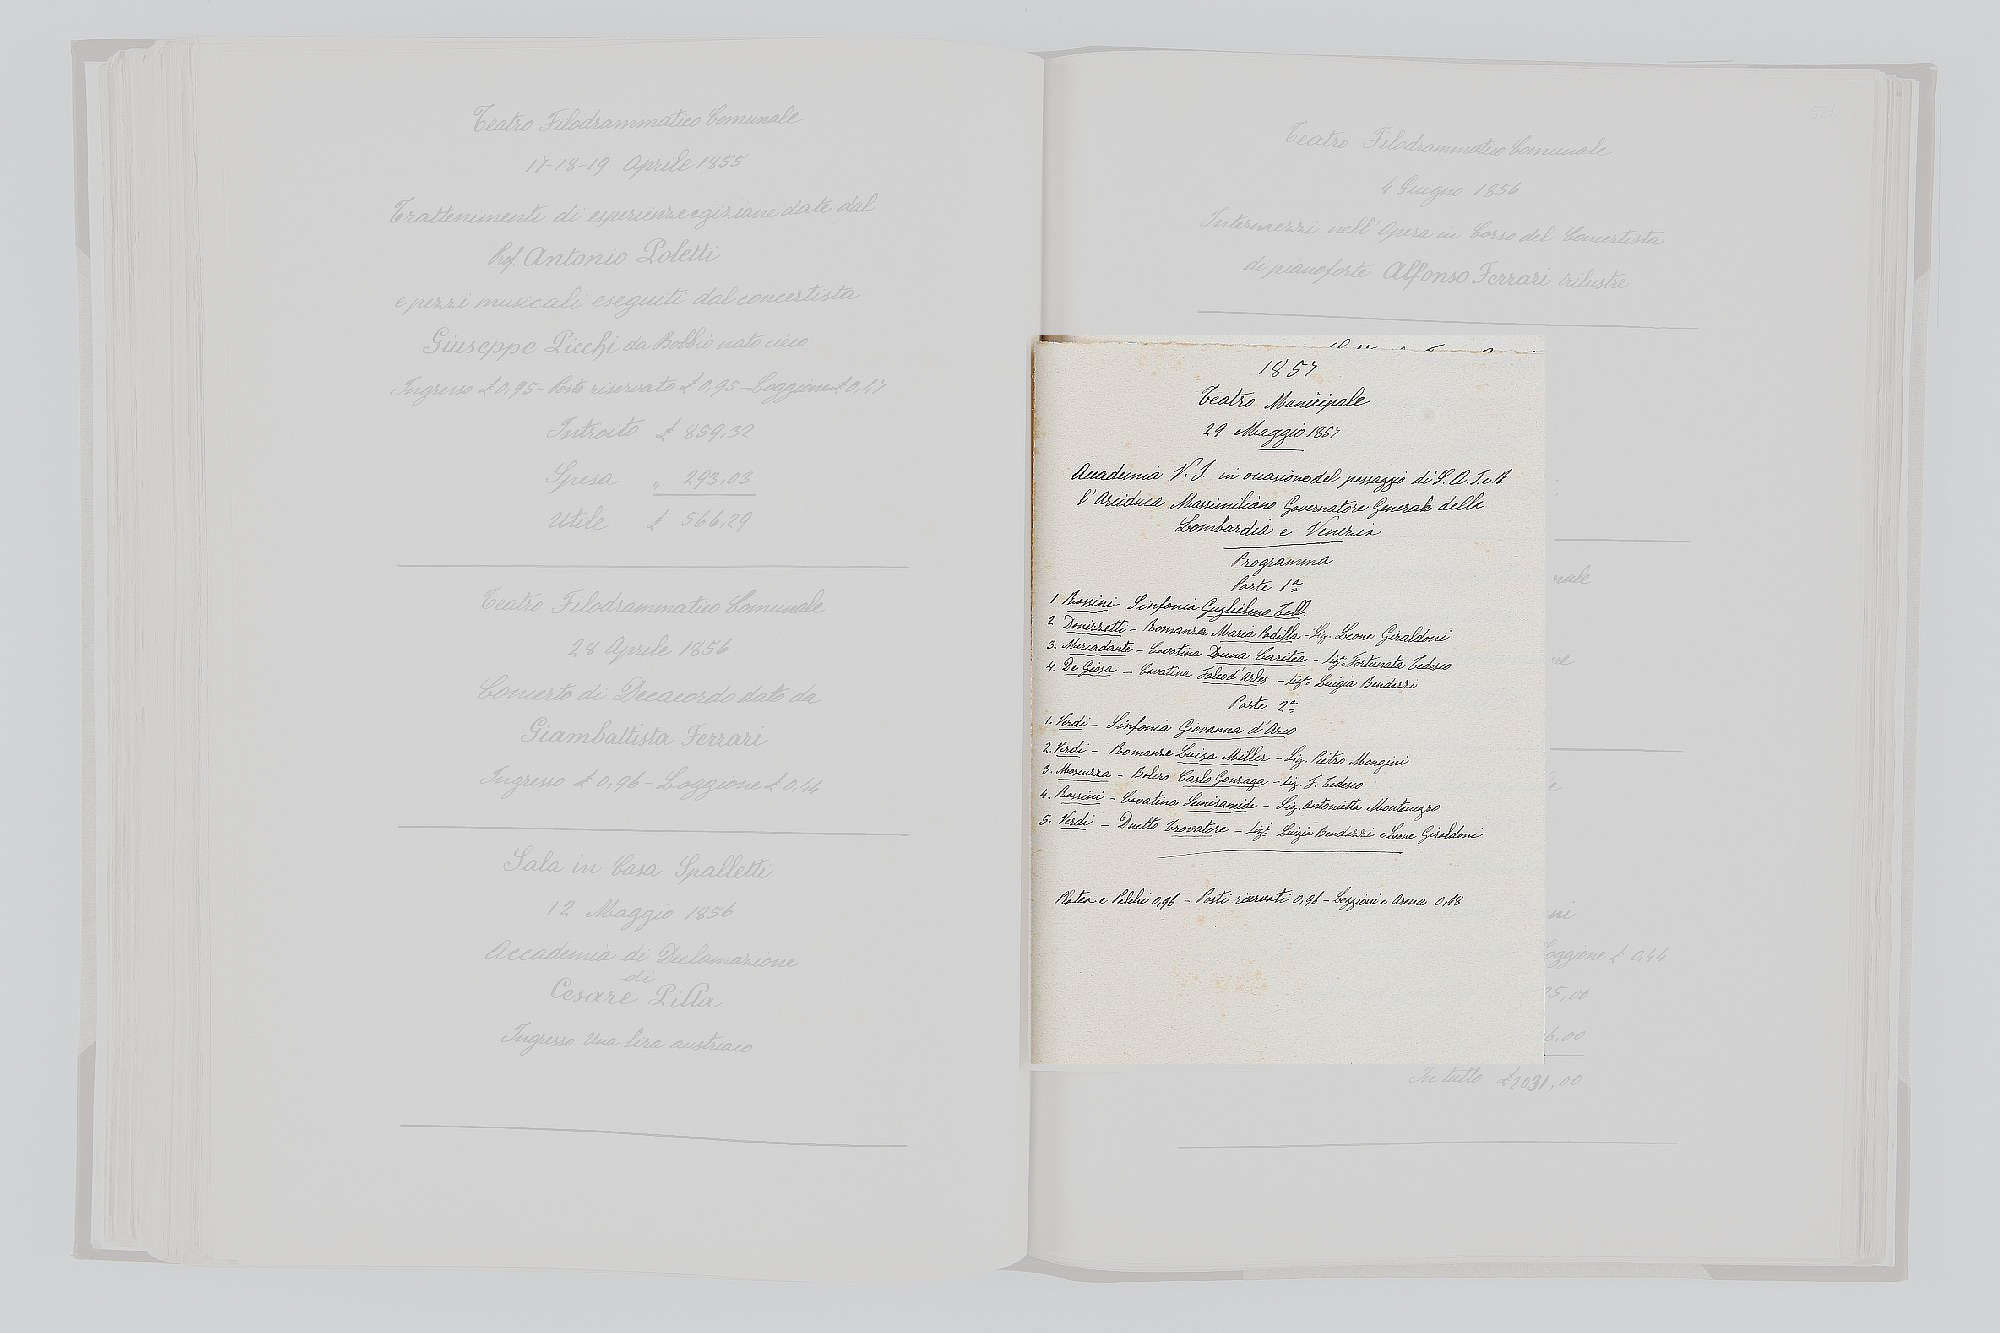 Teatro Filodrammatico Comunale
17-18-19 Aprile 1855
Trattenimenti di esperienze egiziane date dal
Prof. Antonio Poletti
e pezzi musicali eseguiti dal concertista
Giuseppe Picchi da Bobbio nato cieco
Ingresso £ 0,95 - Posto riservato £ 0,95 - Loggione £ 0,17
Introito £ 859,32
Spesa „ 293,03
Utile £ 566,29
Teatro Filodrammatico Comunale
28 Aprile 1856
Concerto di Decacordo dato da
Giambattista Ferrari
Ingresso £ 0,96 - Loggione £ 0,44
Sala in Casa Spalletti
12 Maggio 1856
Accademia di Declamazione
di
Cesare Pilla
Ingresso una lira austriaca
Teatro Filodrammatico Comunale
4 Giugno 1856
Intermezzi nell'Opera in Corso del Concertista
di pianoforte Alfonso Ferrari trilustre
1857
Teatro Municipale
29 Maggio 1857
Accademia V. I. in occasione del passaggio di S. A. I. e R
l'Arciduca Massimiliano Governatore Generale della
Lombardia e Venezia
Programma
Parte 1ª
1 Rossini Sinfonia Guglielmo Tell
2 Donizzetti - Romanza Maria Padilla - Sig. Leone Giraldoni
3. Mercadante - Cavatina Donna Caritea - Sigª Fortunata Tedesco
4. De Giosa - Cavatina Folco d'Arles - Sigª Luigia Bendazzi
Parte 2ª
1. Verdi - Sinfonia Giovanna d'Arco
2. Verdi - Romanze Luisa Miller - Sig. Pietro Mongini
3. - Bolero Carlo Gonzaga - Sig. F. Tedesco
4. Rossini - Cavatina Semiramide - Sig. Antonietta Montenegro
5. Verdi - Duetto Trovatore - Sigi Luigia Bendazzi e Leone Giraldoni
Platea e Palchi 0,96 - Posti riservati 0,96 - Loggioni e Arena 0,48
nale
ne
ni
Loggione £ 0,44
5,00
6,00
In tutto £ 2031,00